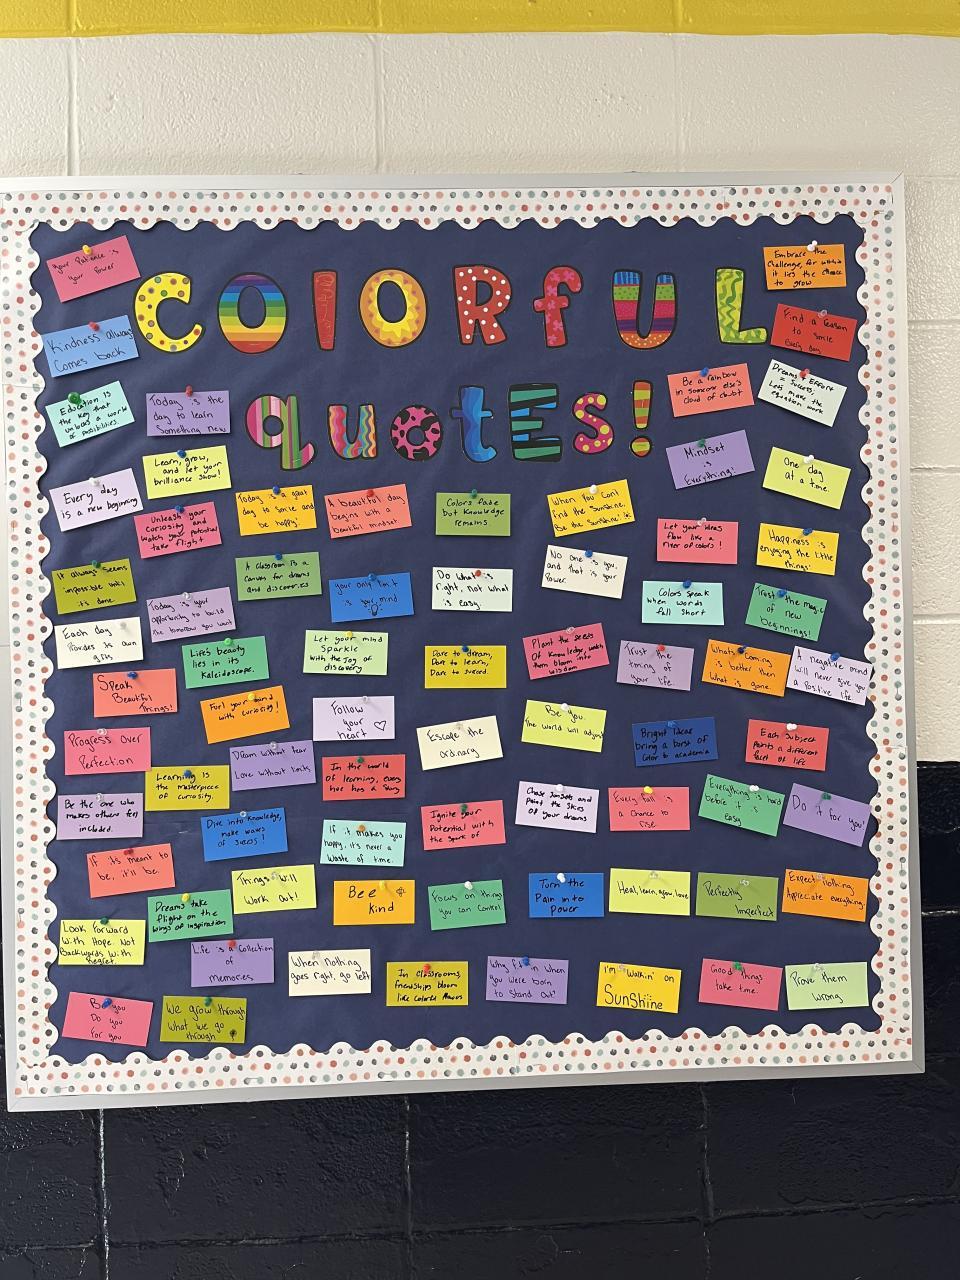 COLORfUL
quotEs!
Your Patience is
your Power
Embrace the
Challenge, for within
it lies the chance
to grow
Kindness always
Comes back
Find a reason
to smile
Every day
Education is
the key that
unlocks a world
of possibilities.
Today is the
day to learn
Something new
Be a rainbow
in someone else's
cloud of doubt
Dreams + Effort
= Success,
Let's make the
equation work
Learn, grow,
and let your
brilliance show!
Mindset
is
Everything!
One day
at a time.
Every day
is a new beginning
Unleash your
curiosity and
watch your potential
take flight
Today is a great
day to smile and
be happy!
A beautiful day
begins with a
beautiful mindset
Colors fade
but knowledge
remains.
When You Can't
find the Sunshine,
Be the Sunshine!
Let your ideas
flow like a
river of colors!
Happiness is
enjoying the little
things!
It always seems
impossible until
it's done.
A Classroom is a
Canvas for dreams
and discoveries
Today is your
opportunity to build
the tomorrow you want
your only limit
is your mind
Do what is
right, not what
is easy.
No one is you,
and that is your
Power.
Colors Speak
when words
fall Short
Trust the magic
of new
beginnings!
Each day
Provides its own
gifts
Life's beauty
lies in its
Kaleidoscope.
Let your mind
Sparkle
with the Joy of
discovery
Dare to dream,
Dare to learn,
Dare to succeed.
Plant the seeds
Of Knowledge, watch
them bloom into
wisdom
Trust the
timing of
your life.
What's Coming
is better than
What is gone.
A negative mind
Will never give you
a Positive life.
Speak
Beautiful
Things!
Fuel your mind
with curiosity!
Follow
your
heart
Escape the
Ordinary
Be You.
The world will adjust
Bright Ideas
bring a burst of
Color to academia
Each Subject
Paints a different
facet of life
Progress Over
Perfection
Learning is
the masterpiece
of curiosity.
Dream without fear
Love without limits
In the world
of learning, every
hue has a Story
Be the one who
makes others feel
included.
Dive into Knowledge,
make waves
of Success!
If it makes you
happy, it's never a
Waste of time.
Ignite your
Potential with
the Spark of
Chase Sunsets and
Paint the Skies
Of your dreams
Every fall is
a Chance to
rise.
Everything is hard
before it is
easy
Do it for you!
If its meant to
be, it'll be.
Dreams take
flight on the
Wings of inspiration
Things Will
Work Out!
Bee
Kind
Focus on things
you can Control
Turn the
Pain into
Power
Heal, learn, grow, love
Perfectly
Imperfect
Expect nothing,
Appreciate everything.
Look Forward
With Hope. Not
Backwards With
Regret.
Life is a Collection
of
Memories
When Nothing
goes right, go left
In Classrooms,
friendships bloom
like Colorful
Why fit in when
you were born
to Stand Out!
I'm Walkin' on
SunShiine
Good things
take time.
Prove them
Wrong
Be you
Do you
For you
We grow through
What we go
through